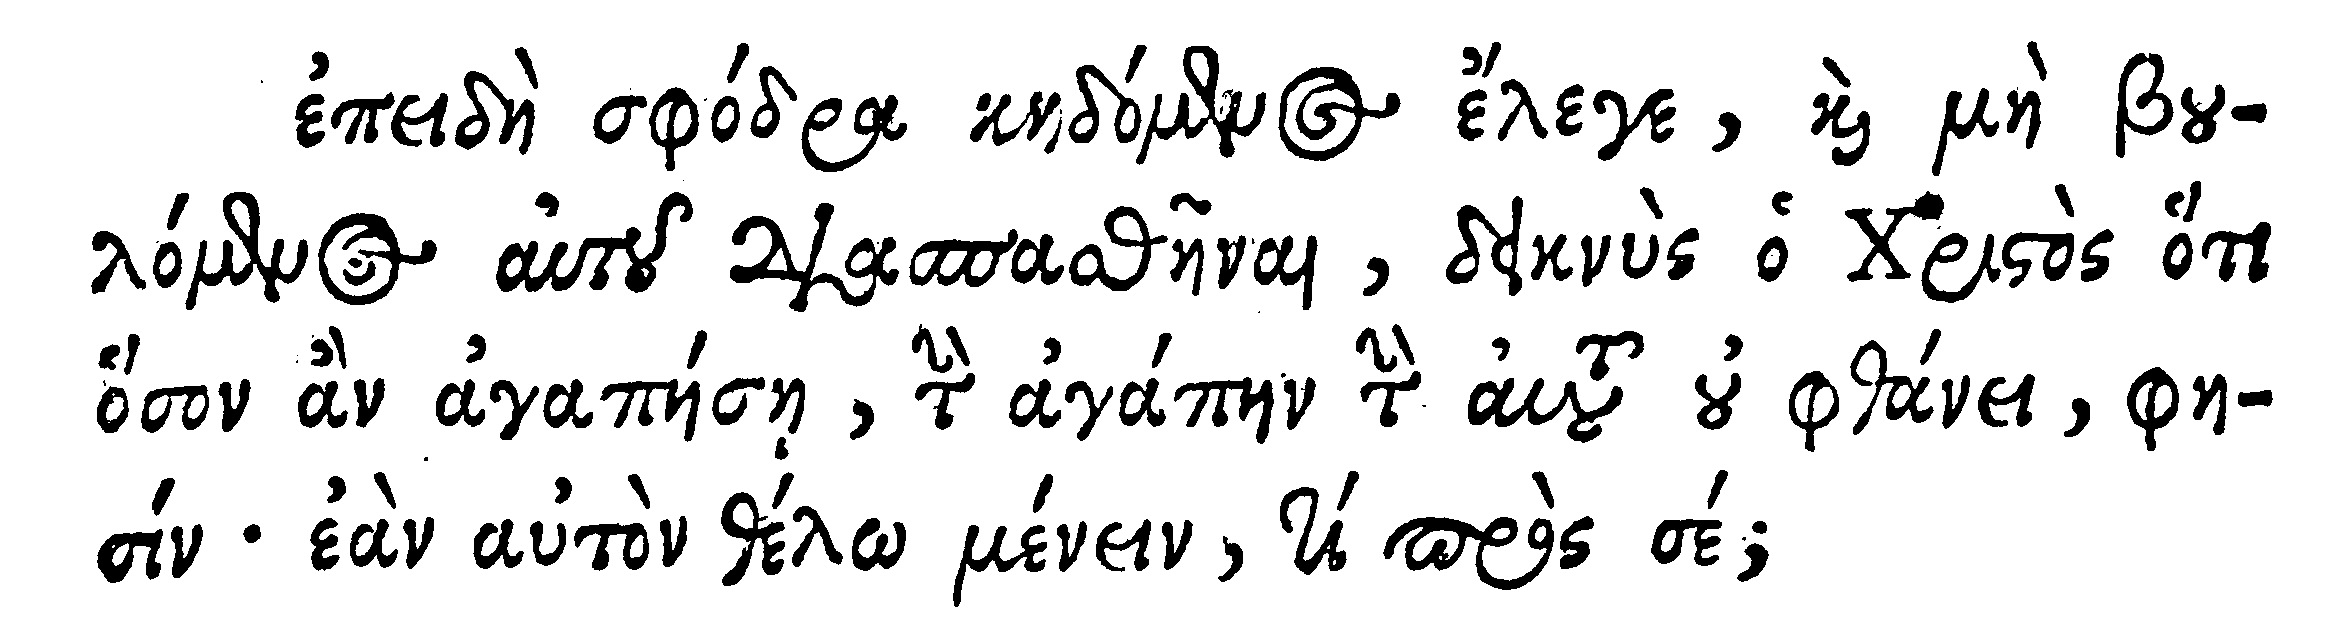 ἐπειδὴ σφόδρα κηδόμενος ἔλεγε, καὶ μὴ βου-
λόμενος αὐτοῦ διασπασθῆναι, δεικνὺς ὁ Χριστὸς ὅτι
ὅσον ἂν ἀγαπήσῃ, τὴν ἀγάπην τὴν αὐτοῦ οὐ φθάνει, φη-
σίν· ἐὰν αὐτὸν θέλω μένειν, τί πρὸς σέ;